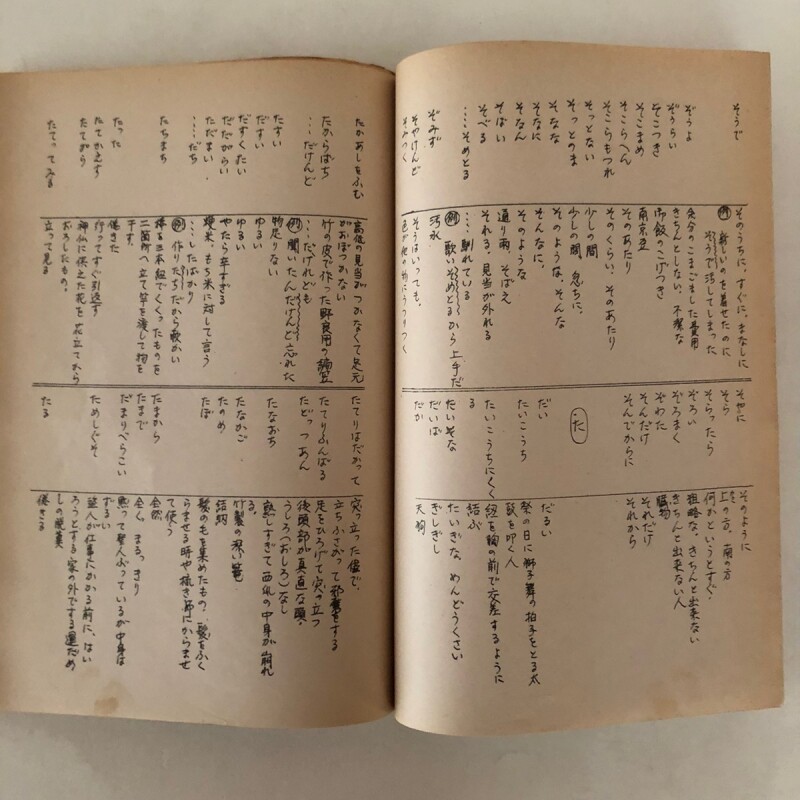 そうで
ぞうよ
ぞうらい
そこつき
そこまめ
そこらへん
そこらもつれ
そっとない
そっとのま
そなな
そなに
そなん
そばい
そべる
……そめとる
ぞみず
そやけんど
そみつく
そのうちに、すぐに、まなしに
例 新しいのを着せたのに
そうで汚してしまった
のこまごました費用
きちんとしない、不潔な
御飯のこげつき
南京豆
そのあたり
そのくらい、そのあたり
少しの間
少しの間
そのような、そんな
そんなに、
そのような
通り雨、そばえ
それる、見当が外れる
……馴れている
例 歌いそめとるから上手だ
汚水
そうはいっても、
色が他の物にうつりつく
そら
そらったら
ぞろい
ぞろまく
ぞわた
そんだけ
そんでからに
た
だい
たいこうち
たいこうちにくくる
たいそな
だいば
だか
そのように
上の方、南の方
何かというとすぐ、
粗略な、きちんと出来ない
きちんと出来ない人
臓物
それだけ
それから
だるい
祭の日に獅子舞の拍子をとる太
鼓を叩く人
紐を胸の前で交差するように
結ぶ
たいぎな、めんどうくさい
ぎしぎし
天狗
たかあしをふむ
たからばち
……だけんど
たすい
だすい
だすくたい
だだがらい
ただまい
……だち
たちまち
たった
たてかえす
たてがら
たてってみる
高低の見当がつかなくて足元
がおぼつかない
竹の皮で作った野良用の編笠
……だけれども
例 聞いたんだけんど忘れた
物足りない
ゆるい
ゆるい
やたら辛すぎる
粳米、もち米に対して言う
……したばかり
例 作りたちだから軟かい
棒を三本組でくくったものを
二箇所へ立て竿を渡して物を
干す。
倦きた
行ってすぐ引返す
神仏に供えた花を花立てから
おろしたもの。
立って見る
たてりはだかって
たてりふんばる
たどっつあん
たなおち
たなかご
たのめ
たぼ
たまから
たまで
だまりべらこい
ためしぐそ
たる
突っ立った儘で、
立ちふさがって邪魔をする
足をひろげて突っ立つ
後頭部が真直な頭、
うしろ(おしろ)なし
熟しすぎて西瓜の中身が崩れ
る。
結納
髪の毛を集めたもの、髪をふく
らませる時や
て使う
全然
全く、まるっきり
黙って聖人ぶっているが中身は
ずるい
盗人が仕事にかかる前に、はい
ろうとする家の外でする運だめ
しの脱糞
倦きる